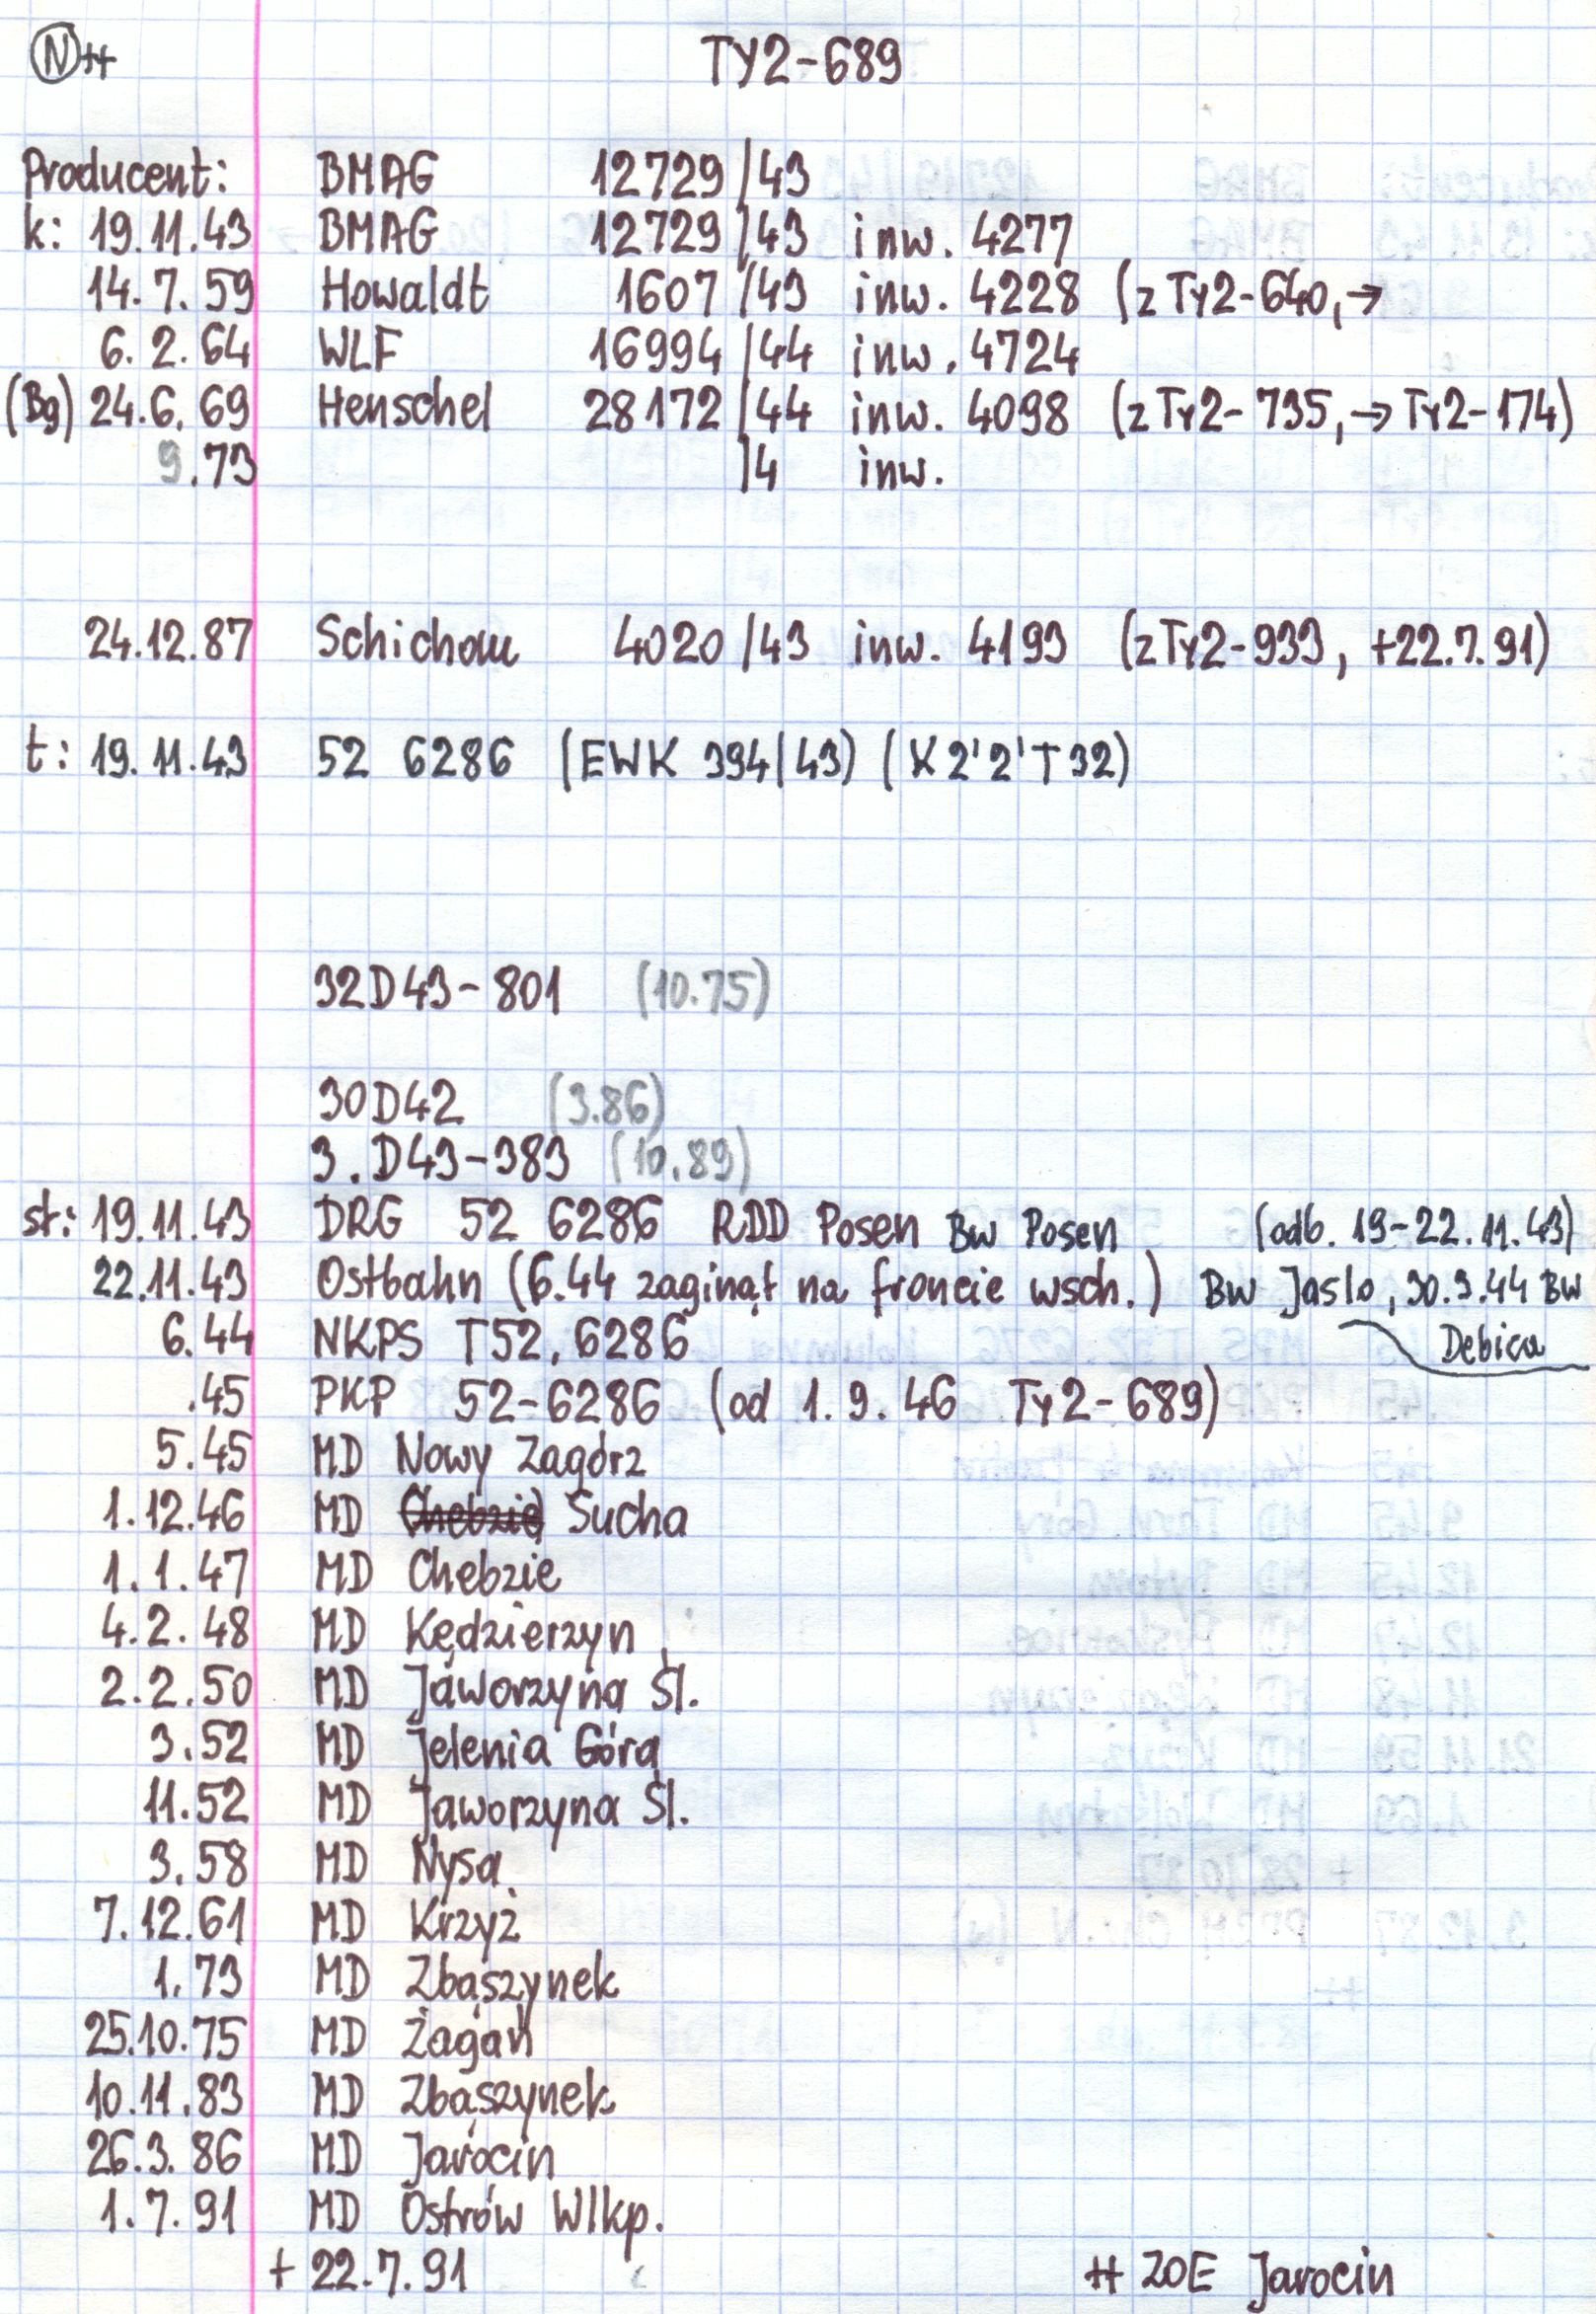 N ++ TY2-689
Producent: BMAG 12729/43
k: 19.11.43 BMAG 12729/43 inw. 4277
14.7.59 Howaldt 1607/43 inw. 4228 (z Ty2-640, →
6.2.64 WLF 16994/44 inw. 4724
(Bg) 24.6.69 Henschel 28172/44 inw. 4098 (z Ty2-735, → Ty2-174)
9.73 /4 inw.
24.12.87 Schichau 4020/43 inw. 4193 (z Ty2-933, +22.7.91)
t: 19.11.43 52 6286 (EWK 394/43) (K 2'2'T32)
32D43-801 (10.75)
30D42 (3.86)
3.D43-383 (10.89)
st: 19.11.43 DRG 52 6286 RDD Posen Bw Posen (odb. 19-22.11.43)
22.11.43 Ostbahn (6.44 zaginął na froncie wsch.) Bw Jaslo, 30.3.44 Bw
Debica
6.44 NKPS T52.6286
.45 PKP 52-6286 (od 1.9.46 Ty2-689)
5.45 MD Nowy Zagórz
1.12.46 MD Chebzie Sucha
1.1.47 MD Chebzie
4.2.48 MD Kędzierzyn
2.2.50 MD Jaworzyna Śl.
3.52 MD Jelenia Góra
11.52 MD Jaworzyna Śl.
3.58 MD Nysa
7.12.61 MD Krzyż
1.73 MD Zbąszynek
25.10.75 MD Żagań
10.11.83 MD Zbąszynek
26.3.86 MD Jarocin
1.7.91 MD Ostrów Wlkp.
+ 22.7.91 ++ ZOE Jarocin